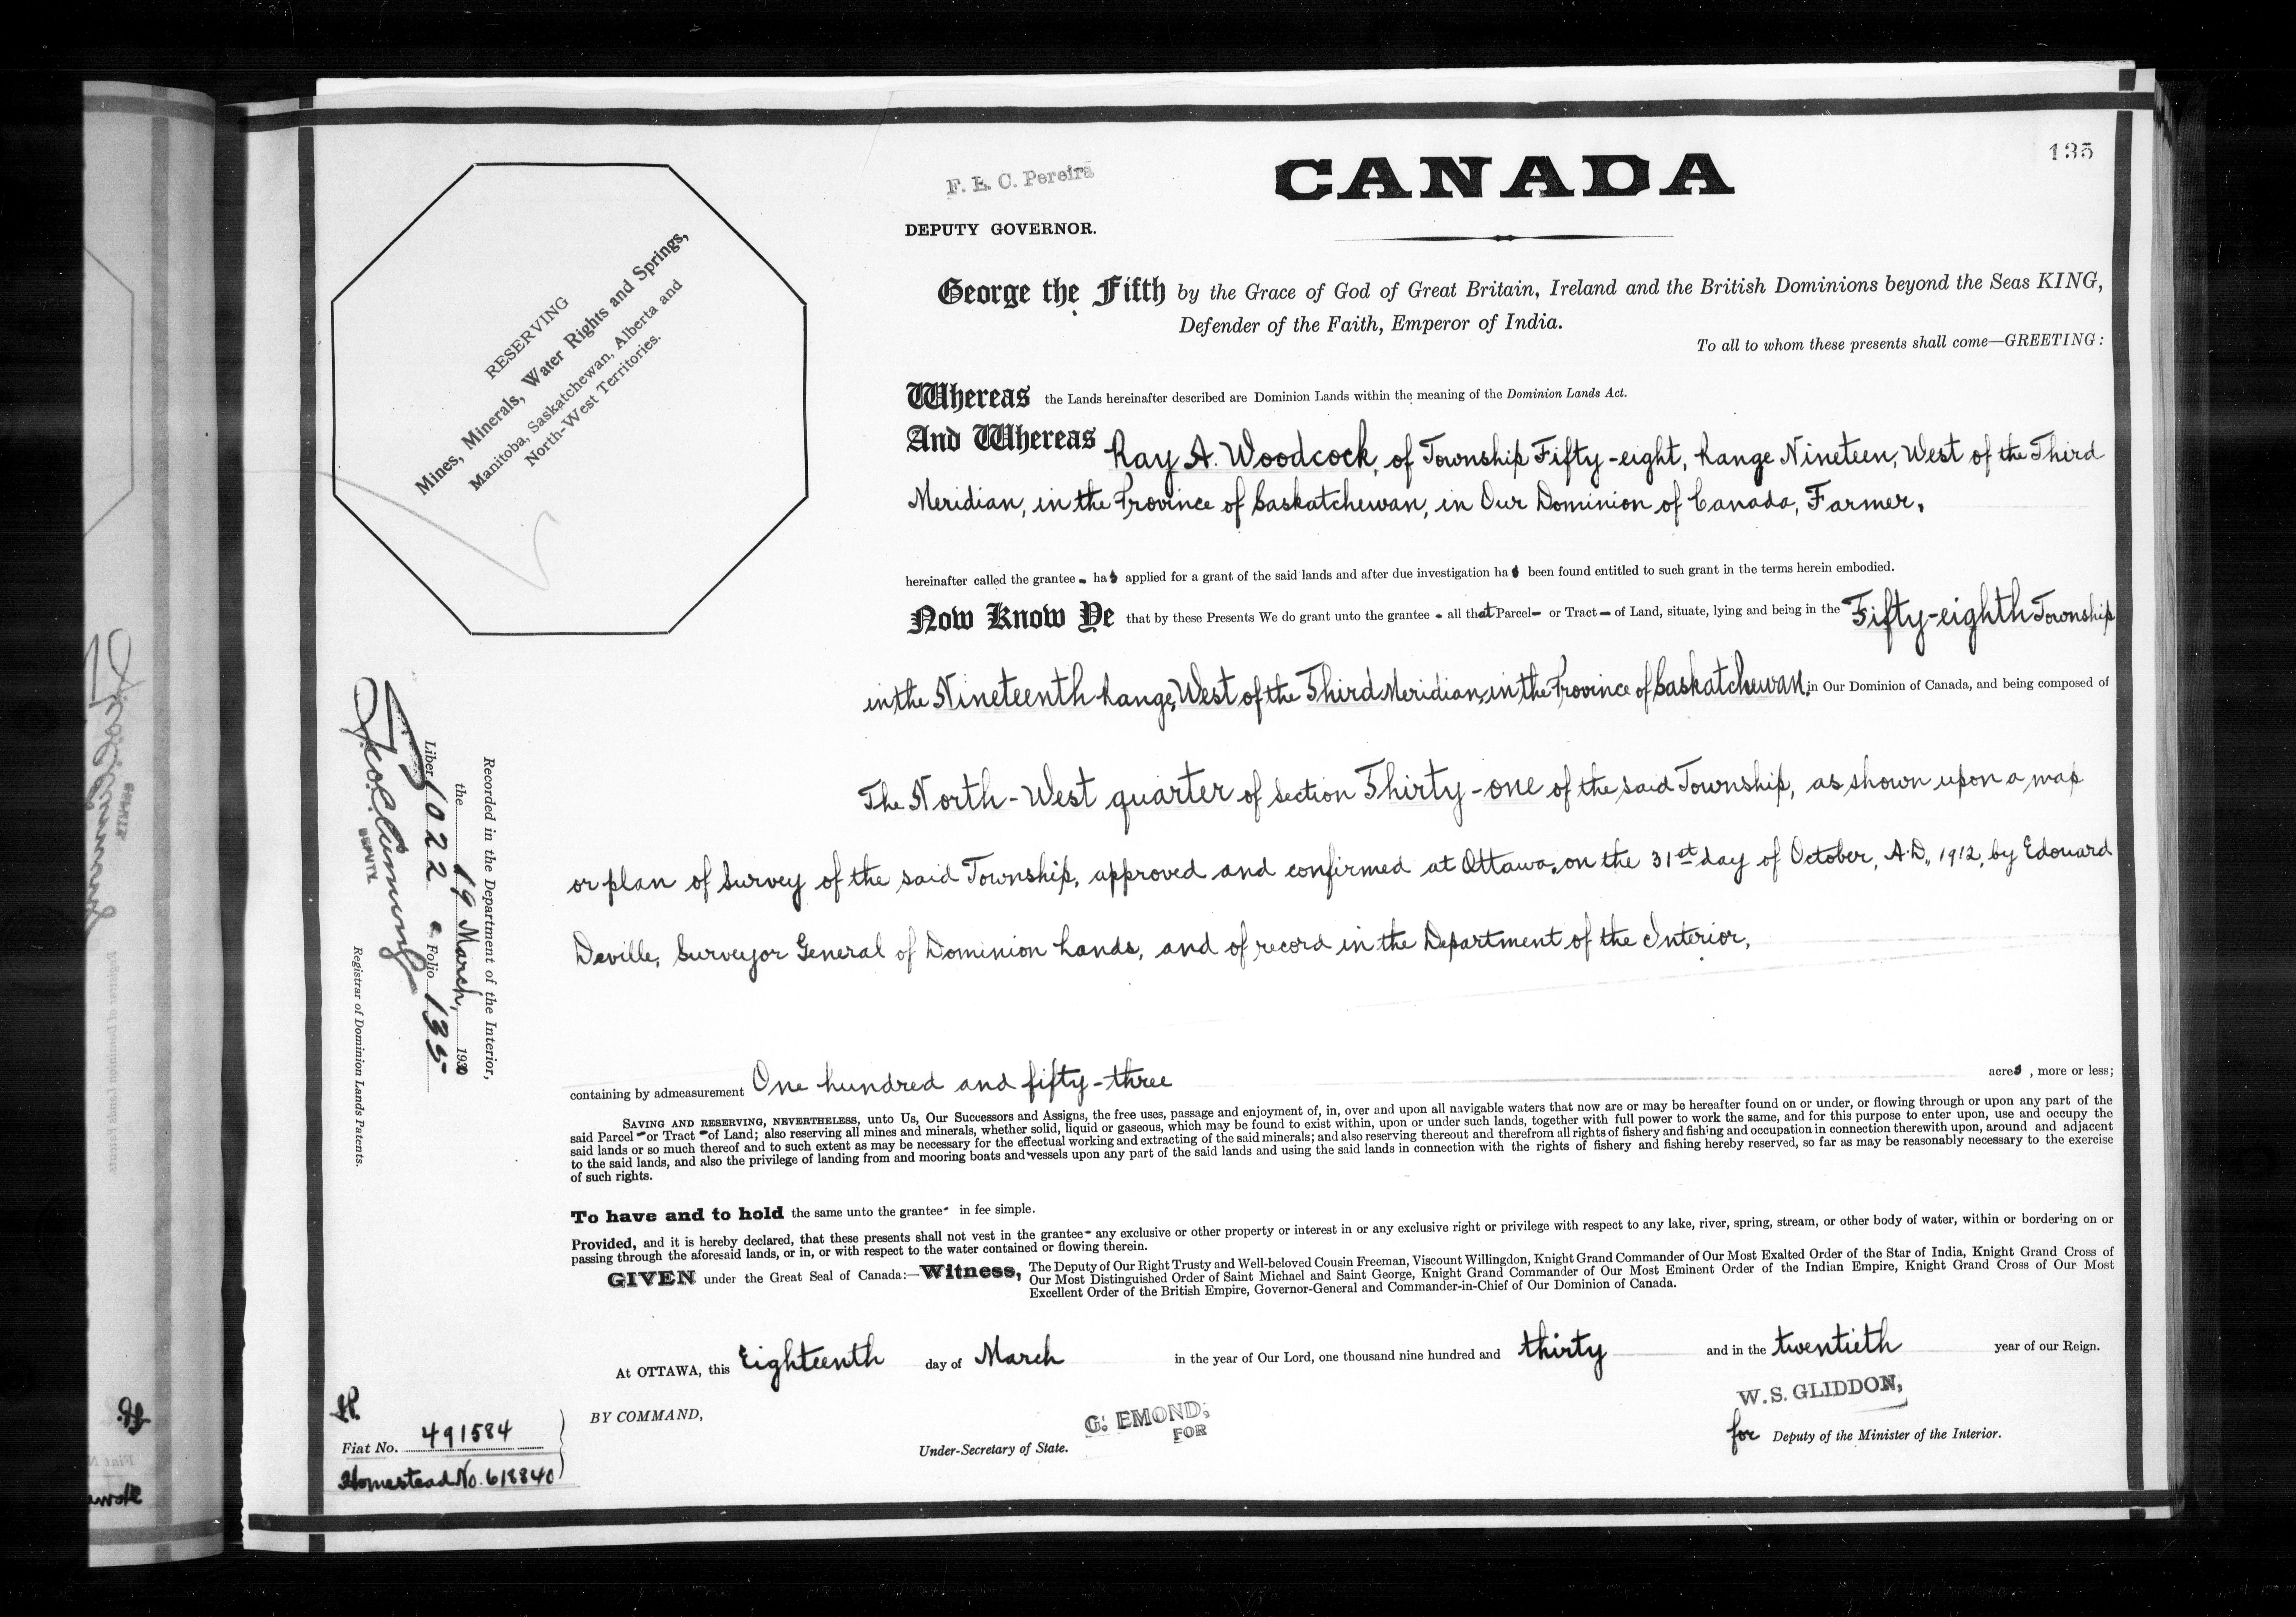 135
F. E. C. Pereira
DEPUTY GOVERNOR.
CANADA
RESERVING
Mines, Minerals, Water Rights and Springs,
Manitoba, Saskatchewan, Alberta and
North-West Territories.
George the Fifth by the Grace of God of Great Britain, Ireland and the British Dominions beyond the Seas KING,
Defender of the Faith, Emperor of India.
To all to whom these presents shall come—GREETING:
Whereas the Lands hereinafter described are Dominion Lands within the meaning of the Dominion Lands Act.
And Whereas Ray A. Woodcock, of Township Fifty-eight, Range Nineteen, West of the Third
Meridian, in the Province of Saskatchewan, in Our Dominion of Canada, Farmer,
hereinafter called the grantee - has applied for a grant of the said lands and after due investigation has been found entitled to such grant in the terms herein embodied.
Now Know Ye that by these Presents We do grant unto the grantee - all that Parcel - or Tract - of Land, situate, lying and being in the Fifty-eighth Township
in the Nineteenth Range, West of the Third Meridian, in the Province of Saskatchewan, in Our Dominion of Canada, and being composed of
The North-West quarter of Section Thirty-one of the said Township, as shown upon a map
or plan of Survey of the said Township, approved and confirmed at Ottawa, on the 31st day of October, A.D., 1912, by Edouard
Deville, Surveyor General of Dominion Lands, and of record in the Department of the Interior,
containing by admeasurement One hundred and fifty-three acres, more or less;
SAVING AND RESERVING, NEVERTHELESS, unto Us, Our Successors and Assigns, the free uses, passage and enjoyment of, in, over and upon all navigable waters that now are or may be hereafter found on or under, or flowing through or upon any part of the
said Parcel - or Tract - of Land; also reserving all mines and minerals, whether solid, liquid or gaseous, which may be found to exist within, upon or under such lands, together with full power to work the same, and for this purpose to enter upon, use and occupy the
said lands or so much thereof and to such extent as may be necessary for the effectual working and extracting of the said minerals; and also reserving thereout and therefrom all rights of fishery and fishing and occupation in connection therewith upon, around and adjacent
to the said lands, and also the privilege of landing from and mooring boats and vessels upon any part of the said lands and using the said lands in connection with the rights of fishery and fishing hereby reserved, so far as may be reasonably necessary to the exercise
of such rights.
To have and to hold the same unto the grantee - in fee simple.
Provided, and it is hereby declared, that these presents shall not vest in the grantee - any exclusive or other property or interest in or any exclusive right or privilege with respect to any lake, river, spring, stream, or other body of water, within or bordering on or
passing through the aforesaid lands, or in, or with respect to the water contained or flowing therein.
GIVEN under the Great Seal of Canada:—Witness, The Deputy of Our Right Trusty and Well-beloved Cousin Freeman, Viscount Willingdon, Knight Grand Commander of Our Most Exalted Order of the Star of India, Knight Grand Cross of
Our Most Distinguished Order of Saint Michael and Saint George, Knight Grand Commander of Our Most Eminent Order of the Indian Empire, Knight Grand Cross of Our Most
Excellent Order of the British Empire, Governor-General and Commander-in-Chief of Our Dominion of Canada.
At OTTAWA, this Eighteenth day of March in the year of Our Lord, one thousand nine hundred and thirty and in the twentieth year of our Reign.
BY COMMAND,
G. EMOND,
FOR
Under-Secretary of State.
W. S. GLIDDON,
for Deputy of the Minister of the Interior.
Recorded in the Department of the Interior,
the 19 March, 1930
Liber 1022 Folio 135
DEPUTY
Registrar of Dominion Lands Patents.
Fiat No. 491584
Homestead No. 618840